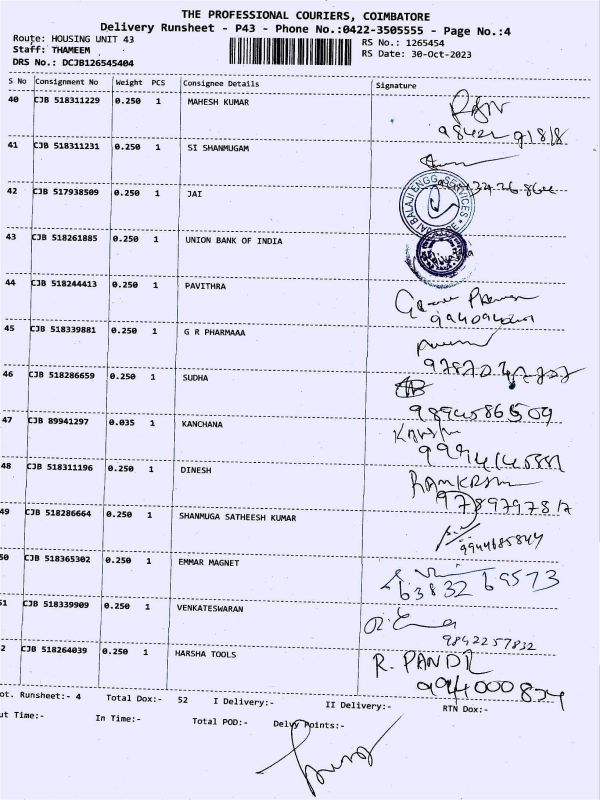 THE PROFESSIONAL COURIERS, COIMBATORE
Delivery Runsheet - P43 - Phone No.:0422-3505555 - Page No.:4
Route: HOUSING UNIT 43
RS No.: 1265454
Staff: THAMEEM
RS Date: 30-Oct-2023
DRS No.: DCJB126545404
S No Consignment No Weight PCS Consignee Details Signature
40 CJB 518311229 0.250 1 MAHESH KUMAR
41 CJB 518311231 0.250 1 SI SHANMUGAM
42 CJB 517938509 0.250 1 JAI
BALAJI ENGG. SERVICES
43 CJB 518261885 0.250 1 UNION BANK OF INDIA
44 CJB 518244413 0.250 1 PAVITHRA
45 CJB 518339881 0.250 1 G R PHARMAAA
46 CJB 518286659 0.250 1 SUDHA
9894586509
47 CJB 89941297 0.035 1 KANCHANA
48 CJB 518311196 0.250 1 DINESH
49 CJB 518286664 0.250 1 SHANMUGA SATHEESH KUMAR
9944685844
50 CJB 518365302 0.250 1 EMMAR MAGNET
63832 69573
51 CJB 518339909 0.250 1 VENKATESWARAN
9842257832
2 CJB 518264039 0.250 1 HARSHA TOOLS
R. PANDI
ot. Runsheet:- 4 Total Dox:- 52 I Delivery:- II Delivery:- RTN Dox:-
ut Time:- In Time:- Total POD:- Delvy Points:-